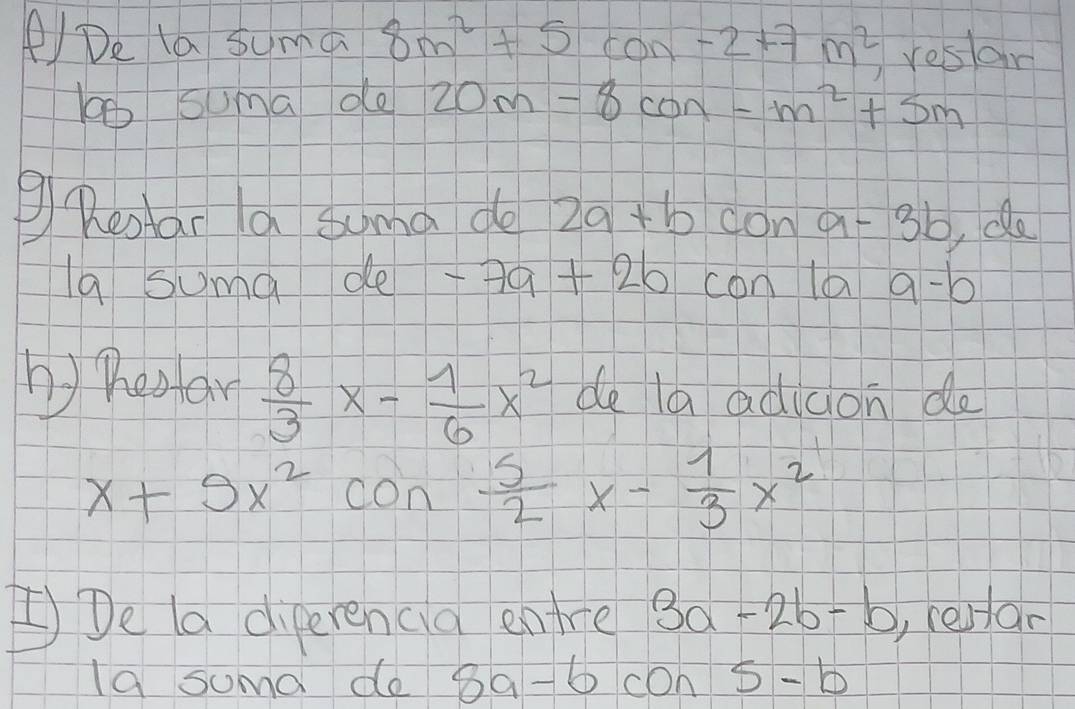 e) De la suma 8m² + 5 con -2+7 m², restar
la suma de 20m - 8 con - m² + 5m
g) Restar la suma de 2a + b con a - 3b, de
la suma de -7a + 2b con la a-b
h) Restar 8/3 x - 1/6 x² de la adición de
x + 9x² con -5/2 x - 1/3 x²
I) De la diferencia entre 3a - 2b - b, restar
la suma de 8a - b con 5 - b